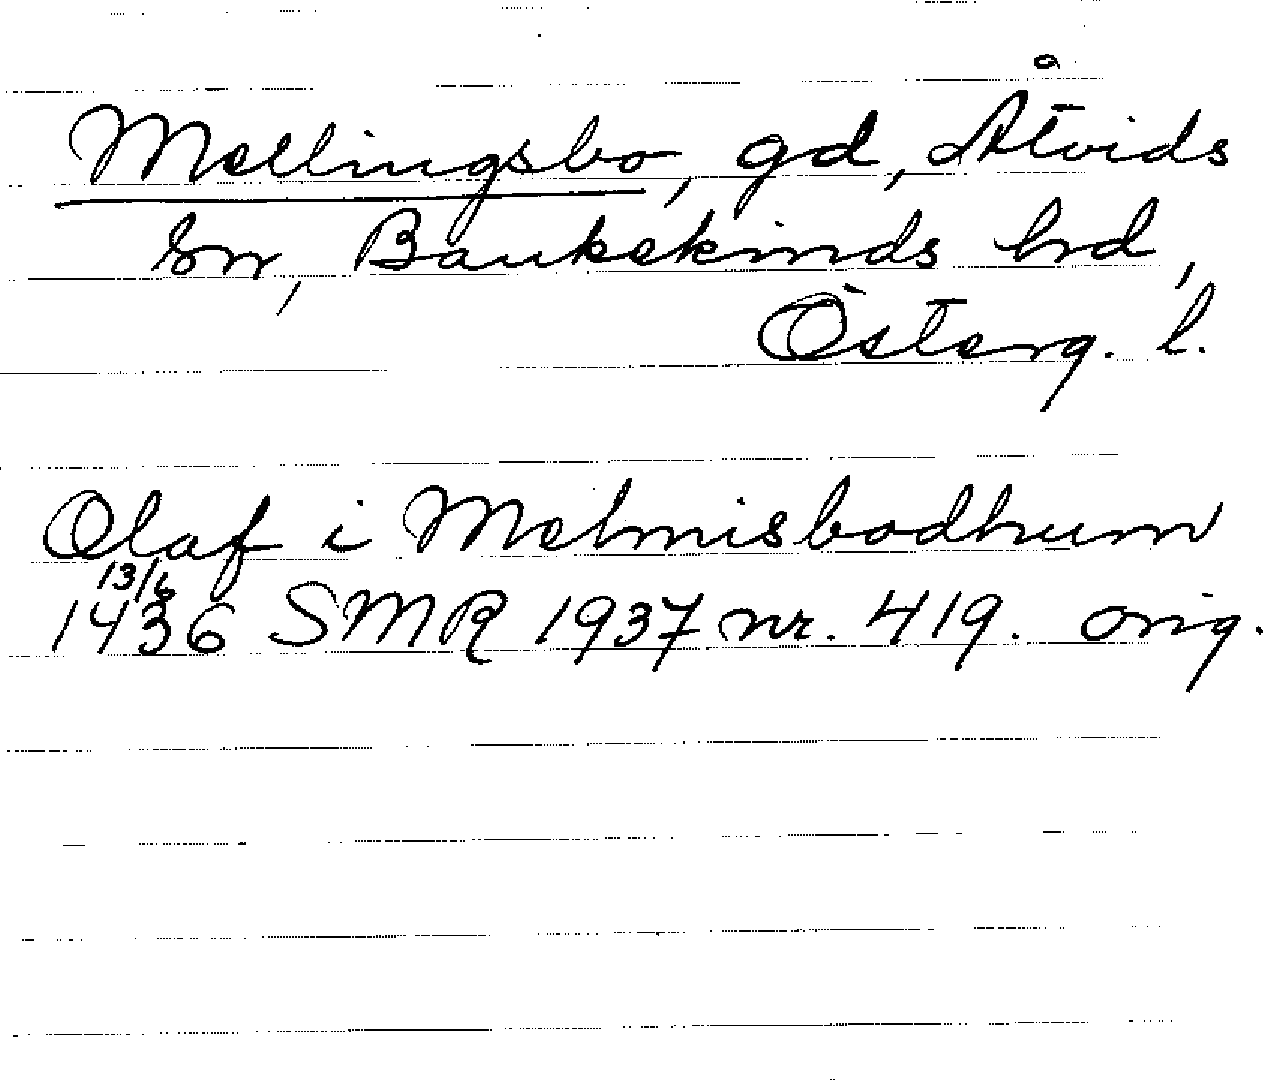 Mellingsbo, gd, Åtvids
sn, Bankekinds hrd,
Österg. l.
Olaf i Melmisbodhum
13/6
1436 SMR 1937 nr. 419. orig.